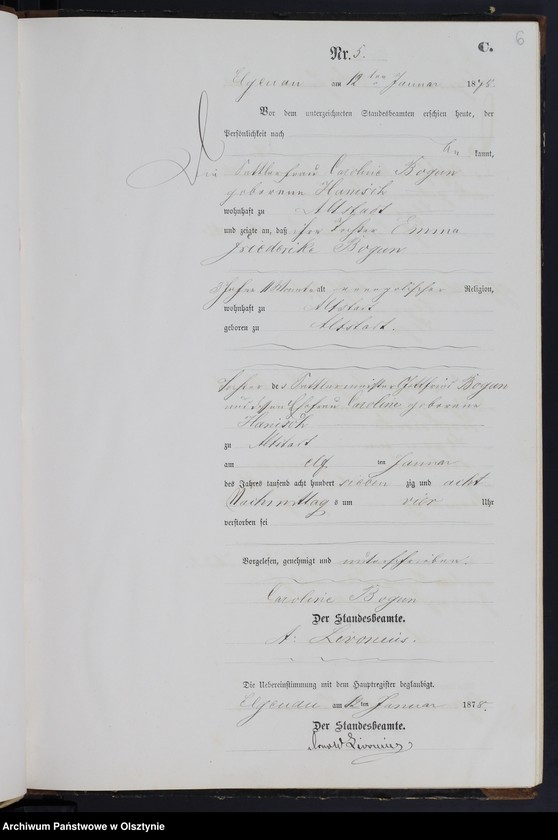 6
C.
Nr. 5.
Elgenau am 12ten Januar 1878.
Vor dem unterzeichneten Standesbeamten erschien heute, der
Persönlichkeit nach
kannt,
die Sattlerfrau Caroline Bogun
geborene Hanisch
wohnhaft zu Altstadt
und zeigte an, daß ihre Tochter Emma
Friederike Bogun
Jahre Monate alt evangelischer Religion,
wohnhaft zu Altstadt
geboren zu Altstadt.
Tochter des Sattlermeister Gottfried Bogun
und dessen Ehefrau Caroline geborene
Hanisch
zu Altstadt
am elf ten Januar
des Jahres tausend acht hundert sieben zig und acht
Nachmittags um vier Uhr
verstorben sei
Vorgelesen, genehmigt und unterschrieben.
Caroline Bogun
Der Standesbeamte.
A. Livonius.
Die Uebereinstimmung mit dem Hauptregister beglaubigt.
Elgenau am 12ten Januar 1878.
Der Standesbeamte.
Livonius
Archiwum Państwowe w Olsztynie